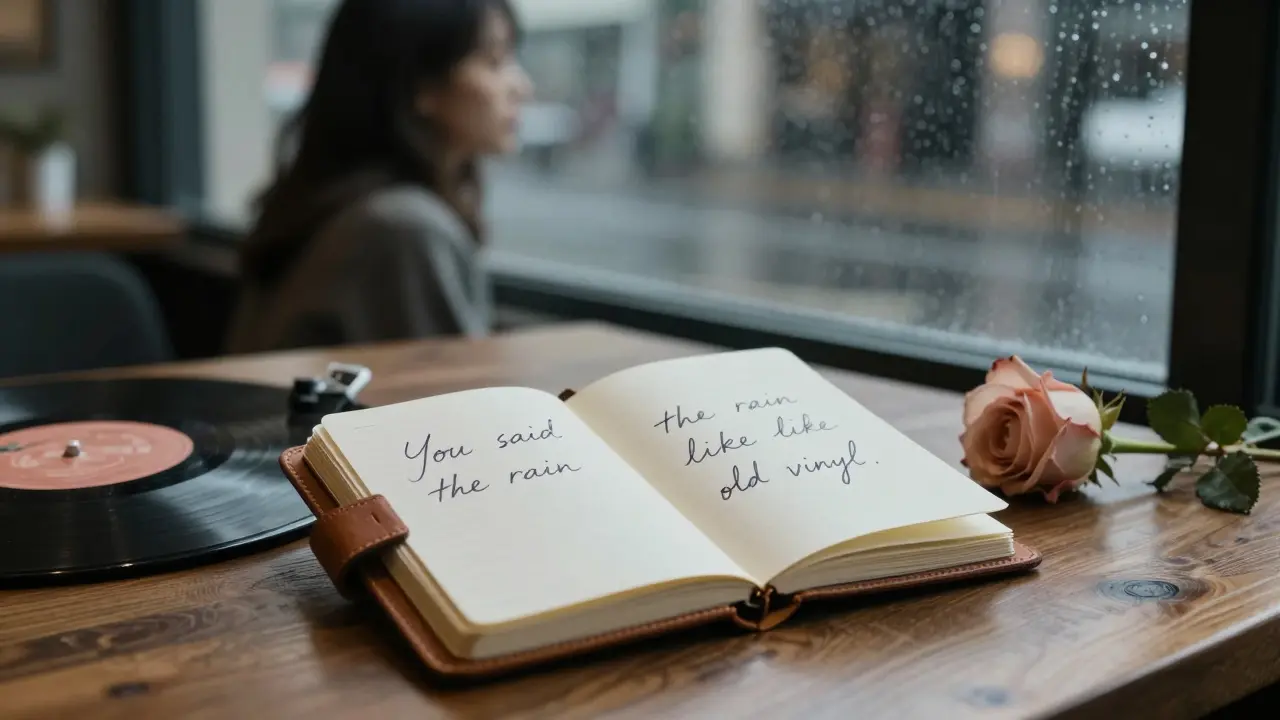 You said
the rain
the rain
like like
old vinyl.